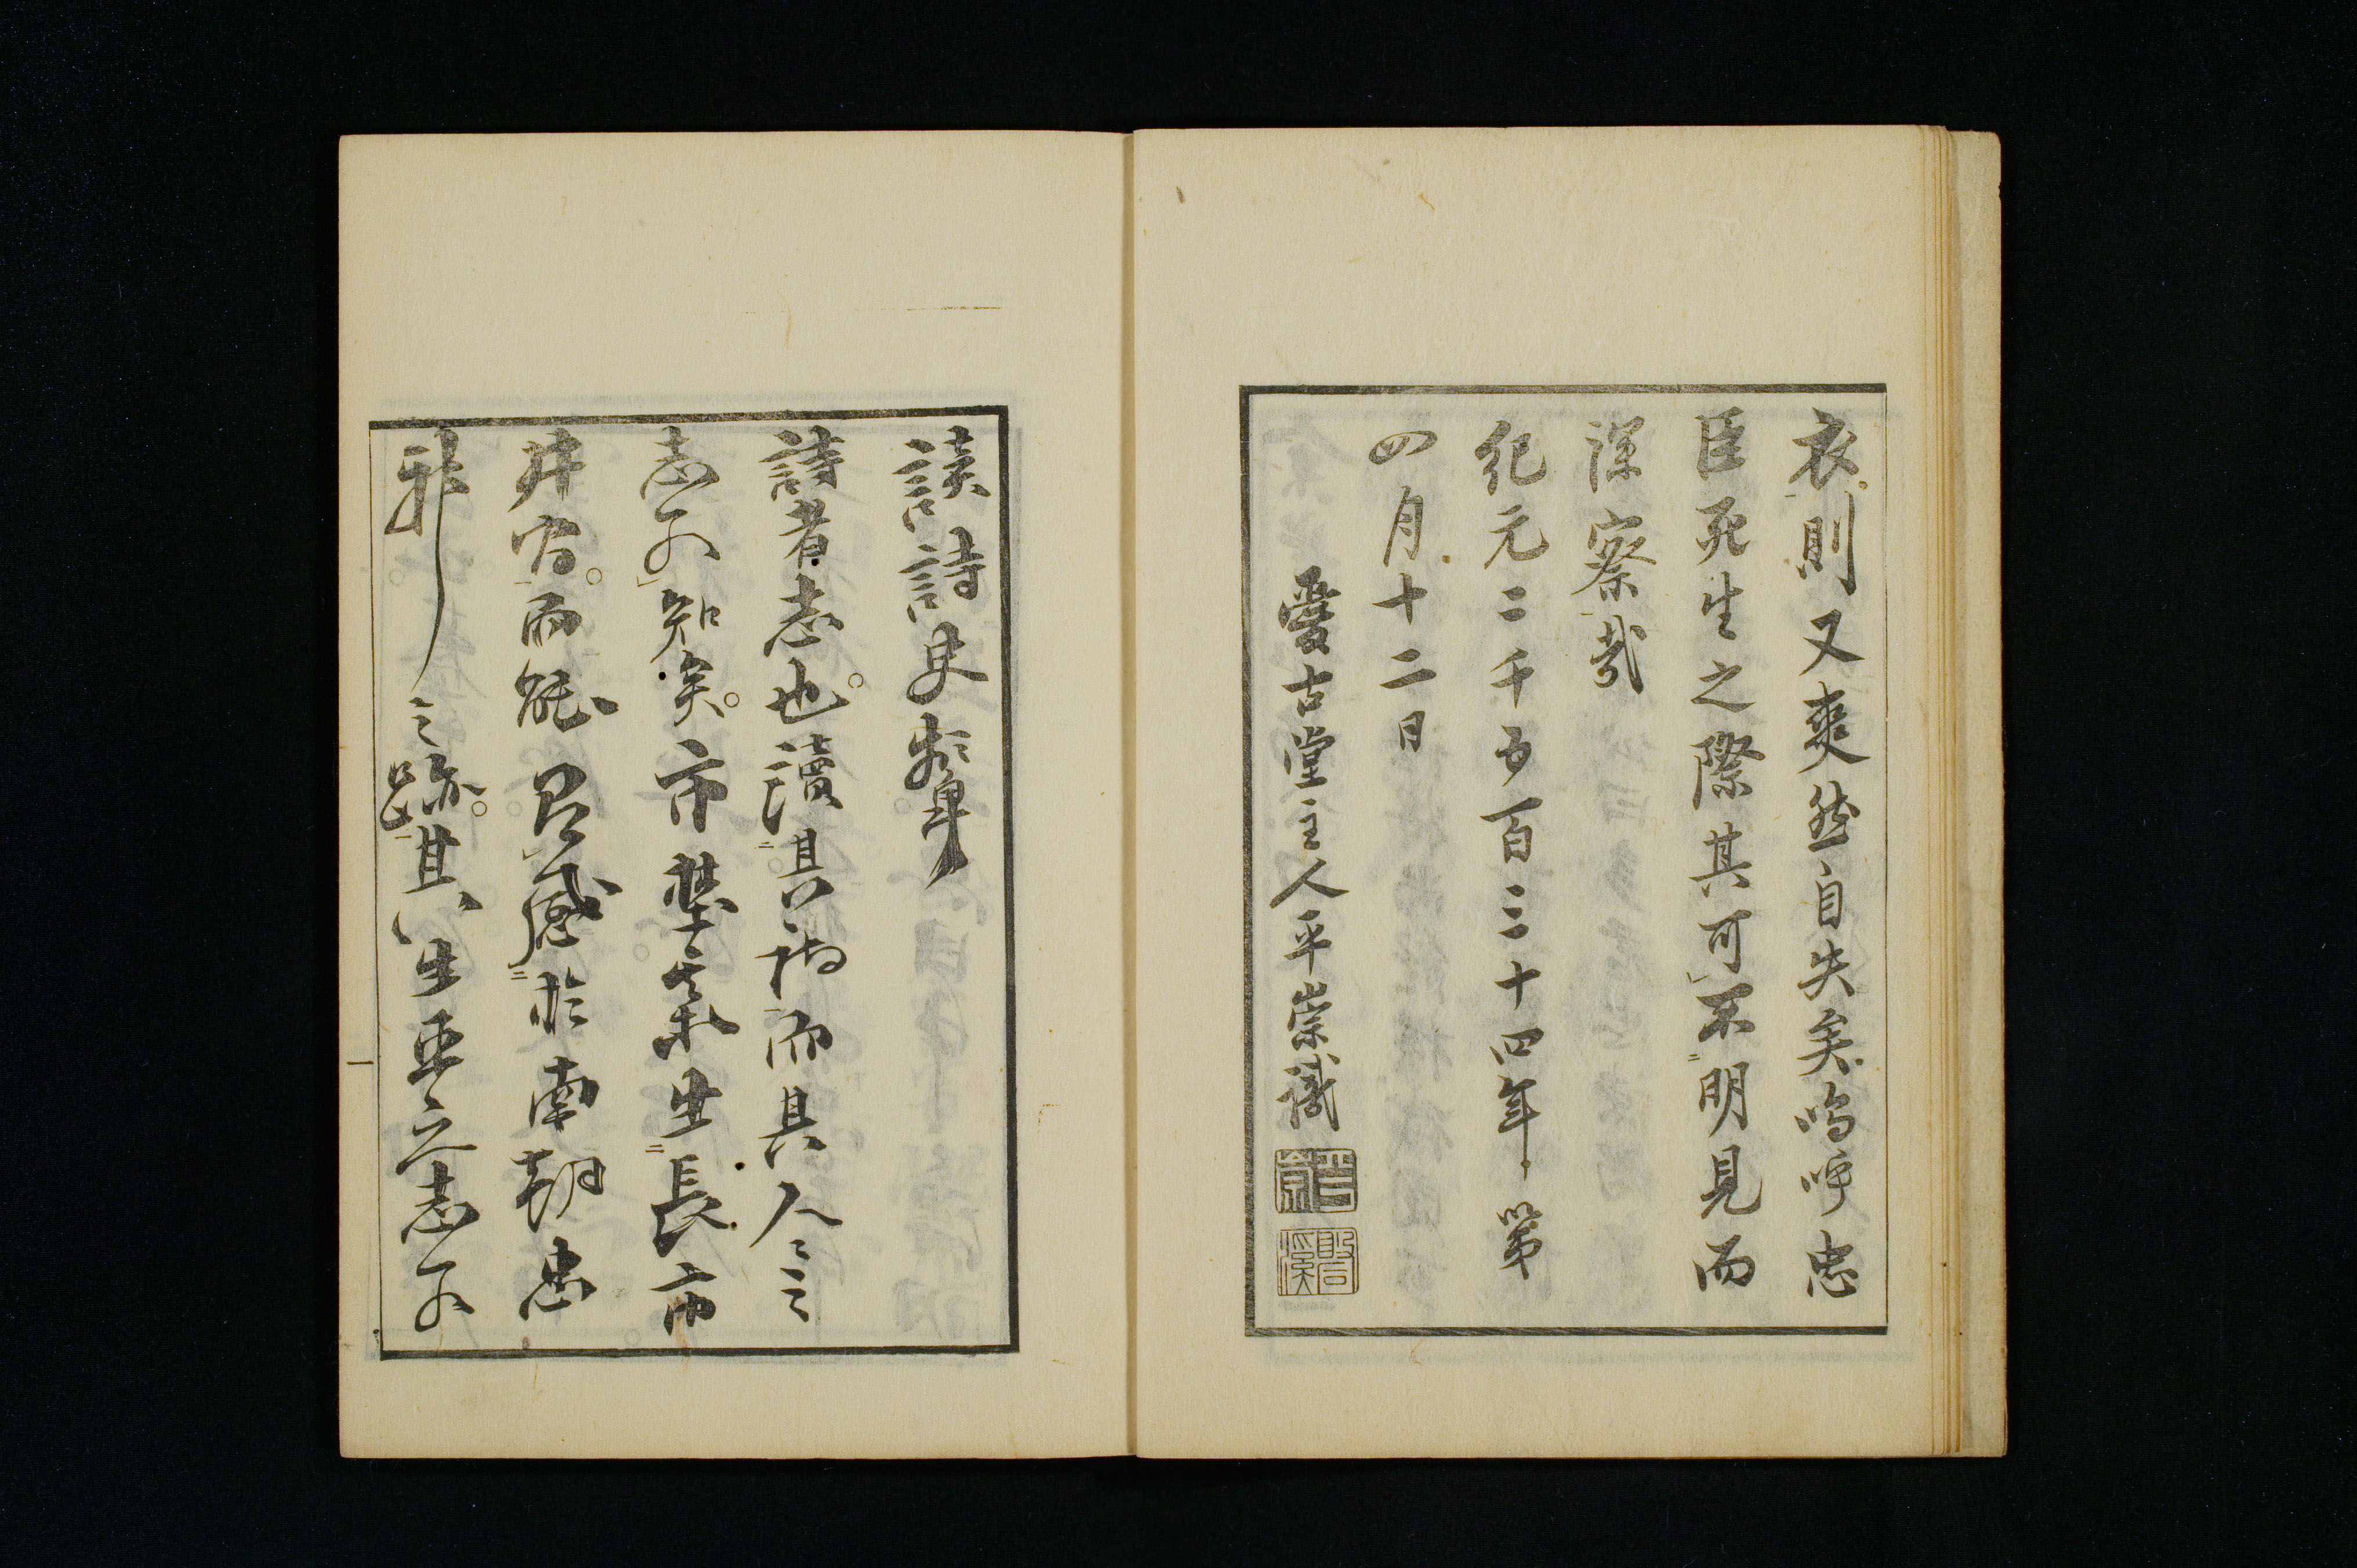 衣則又爽然自失矣嗚呼忠
臣死生之際其可不明見而
深察哉
紀元二千五百三十四年第
四月十二日
愛古堂主人平崇識
読詩史
詩者志也読其詩而其人之
志可知矣市村生長市
井而能感於南朝忠
之跡其生平之志可